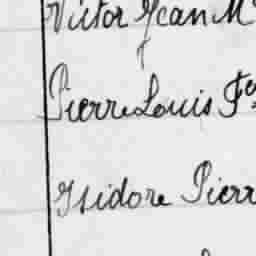 Victor Jean M
Pierre Louis Fs
Isidore Pierr